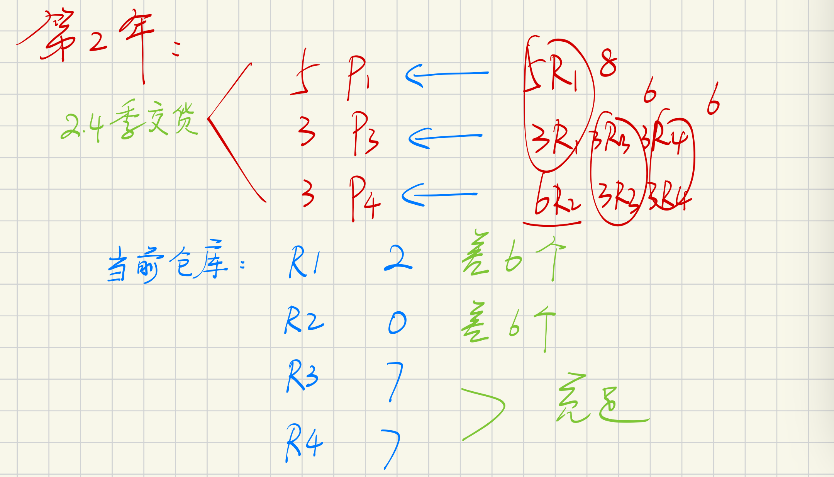 第2年：
2.4季交货
5 P1 ← 5R1 8
3 P3 ← 3R1 3R3 3R4 6 6
3 P4 ← 6R2 3R3 3R4
当前仓库： R1 2 差6个
R2 0 差6个
R3 7
R4 7 充足